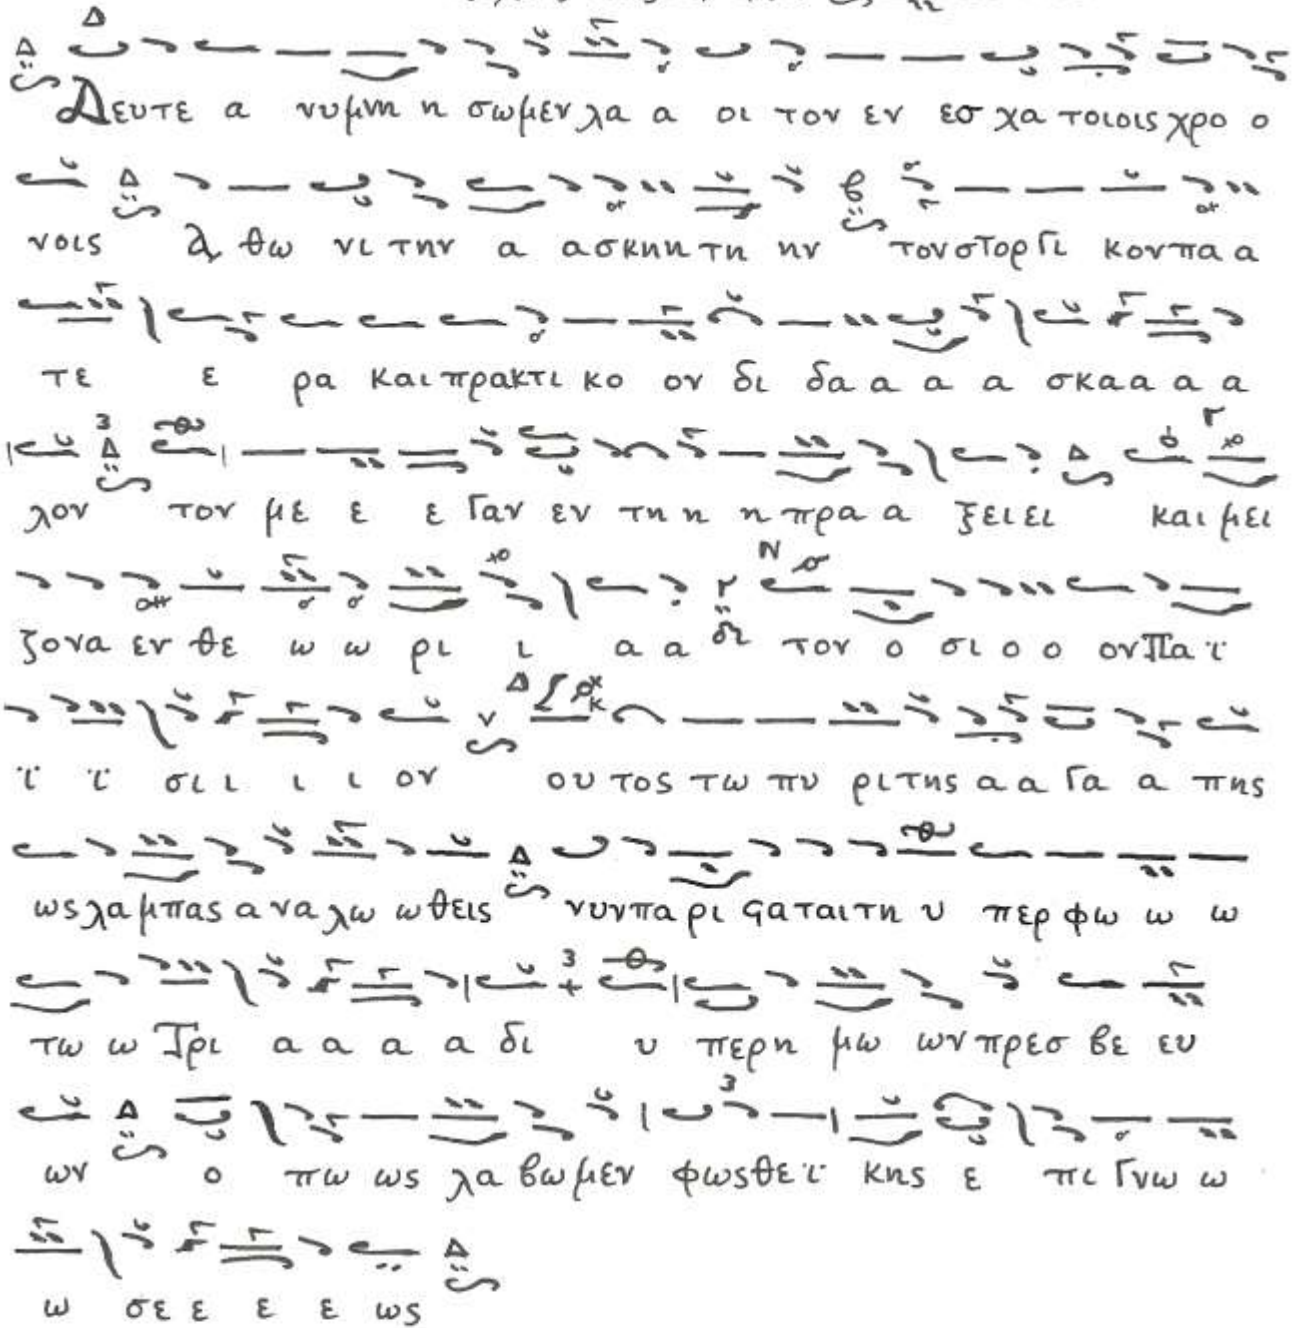 Δευτε α νυμνη η σωμεν λα α οι τον εν εσ χα τοιοις χρο ο
νοις Α θω νι την α ασκηη τη ην τον στορ γι κον πα α
τε ε ρα και πρακτι κο ον δι δα α α α σκα α α α
λον τον με ε ε γαν εν τη η η πρα α ξει ει και μει
ζονα εν θε ω ω ρι ι α α τον ο σι ο ο ον Πα ϊ
ϊ ϊ σι ι ι ι ον ου τος τω πυ ρι της α α γα α πης
ως λα μπας α να λω ω θεις νυν πα ρι ϛαται τη υ περ φω ω ω
τω ω Τρι α α α α δι υ περ η μω ων πρεσ βε ευ
ων ο πω ως λα βω μεν φως θε ϊ κης ε πι γνω ω
ω σε ε ε ε ως